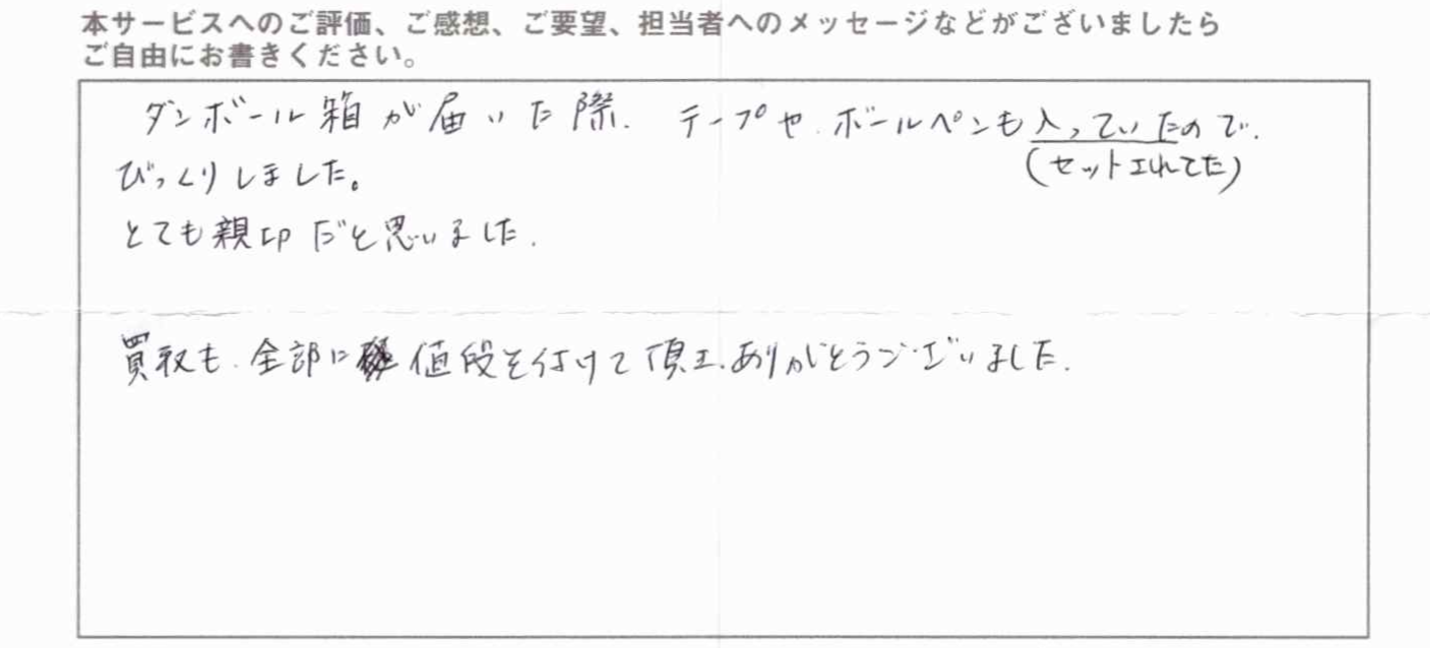 本サービスへのご評価、ご感想、ご要望、担当者へのメッセージなどがございましたら
ご自由にお書きください。
ダンボール箱が届いた際、テープや、ボールペンも入っていたので、
(セットされてた)
びっくりしました。
とても親切だと思いました。
買取も、全部に値段を付けて頂き、ありがとうございました。